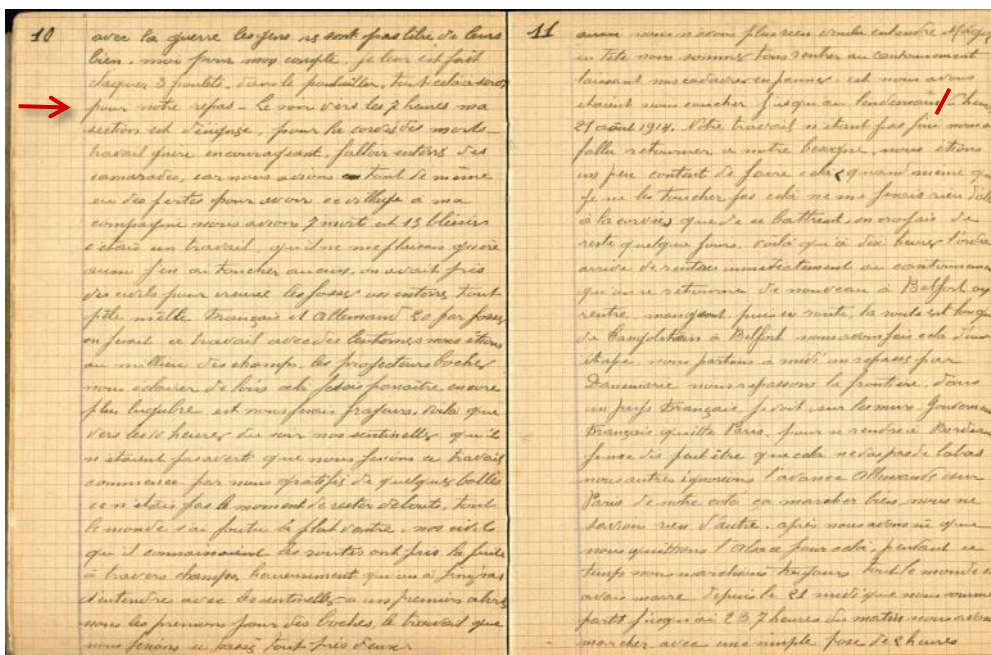 10
avec la guerre les gens ns sont pas titre de leurs
bien. moi pour mon compte, je leur est fait
claquer 3 poulets, dans le poulailler, tout cela a servi
pour notre repas - Le soir vers les 7 heures ma
section est désigné, pour la corvée des morts -
travail guere encourageant, falloir enterré des
camarades, car nous avions tout de même
eu des pertes pour avoir ce village a ma
compagnie nous avions 7 mort et 13 blessés
c'etais un travail, qu'il ne me plaisais guère
aussi j'en ai toucher aucun, on avait pris
des civils pour creuse les fosses on enterré tout
pêle mêlle Français et Allemand 20 par fosse
on faisait ce travail avec des lanternes nous étions
au millieu des champs. les projecteurs boches
nous eclairer de loins cela faisais paraître encore
plus lugubre est nous faisais frayeurs, voilà que
vers les 10 heures du soir nos sentinelles qu'ils
n'étaient pas averti que nous faisions ce travail
commence par nous gratifis de quelques balles
ce n'étais pas le moment de rester debouts, tout
le monde s'ai foutu à plat ventre, nos civils
qui il connaissaient les routes ont pris la fuite
à travers champs, heureusement qu'on à fini par
s'entendre avec les sentinelles a un premier abord
nous les prenions pour des boches, le travail que
nous faisions se passé tout près d'eux
11
aussi nous n'avons plus rien voulu entendre
en tête nous sommes tous rentrer au cantonnement
laissant nos cadavres en pannes. est nous avons
etaient nous coucher jusqu'au lendemain
21 août 1914. Notre travail n'etant pas fini nous a
fallu retourner a notre besogne, nous etions
un peu content de faire cela, quand même que
je ne les toucher pas cela ne me faisais rien
à la corvée, que de ce battre, on croyais de
resté quelque jours. voilà qu'à dix heures l'ordre
arrive de rentrer immédiatement au cantonnement
qu'on se retourne de nouveau à Belfort on
rentre, mangeont, puis en route, la route est longue
de à Belfort nous avons fais cela d'une
étape. nous partons à midi on repasse par
Danemarie nous repassons la frontière, dans
un pays Français je voit, sur les murs. Gouvernement
Français quitte Paris, pour se rendre à Bordeaux
je me dis peut être que cela ne vas pas de labas
nous autres ignorions l'avance Allemande sur
Paris de notre coté ça marcher bien, nous ne
savions rien d'autre. après nous avons su que
nous quittions l'Alsace pour cela, pentant ce
temps nous marchions toujours tout le monde en
avais marre depuis le 21 midi que nous sommes
parti jusqu'au 23, 7 heures du matin nous avons
marcher avec une simple pose de 2 heures